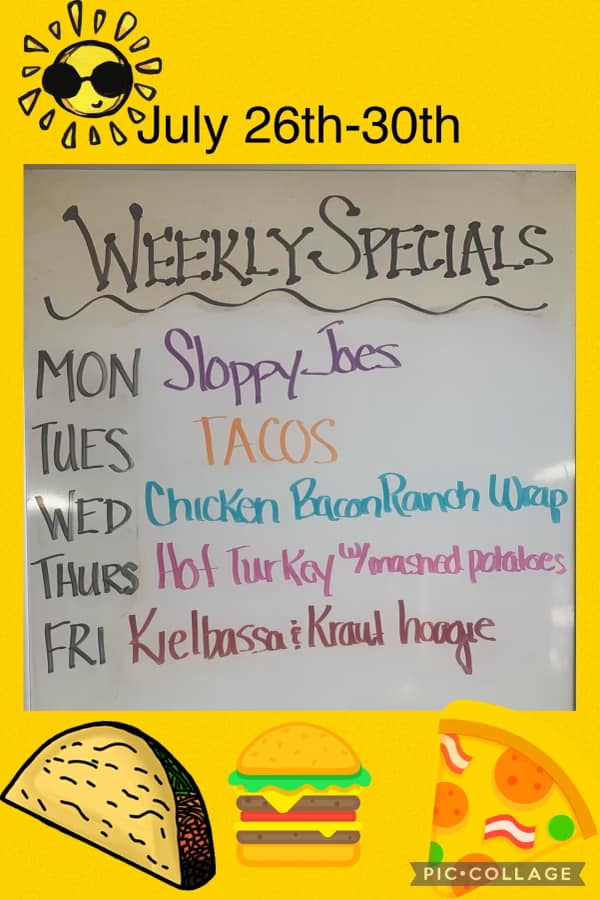 July 26th-30th
WEEKLY SPECIALS
MON Sloppy Joes
TUES TACOS
WED Chicken Bacon Ranch Wrap
THURS Hot Turkey w/mashed potatoes
FRI Kielbassa & Kraut hoagie
PIC•COLLAGE